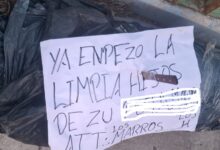 YA EMPEZO LA
LIMPIA HIJOS
DE ZU
ATT: LOS MARROS